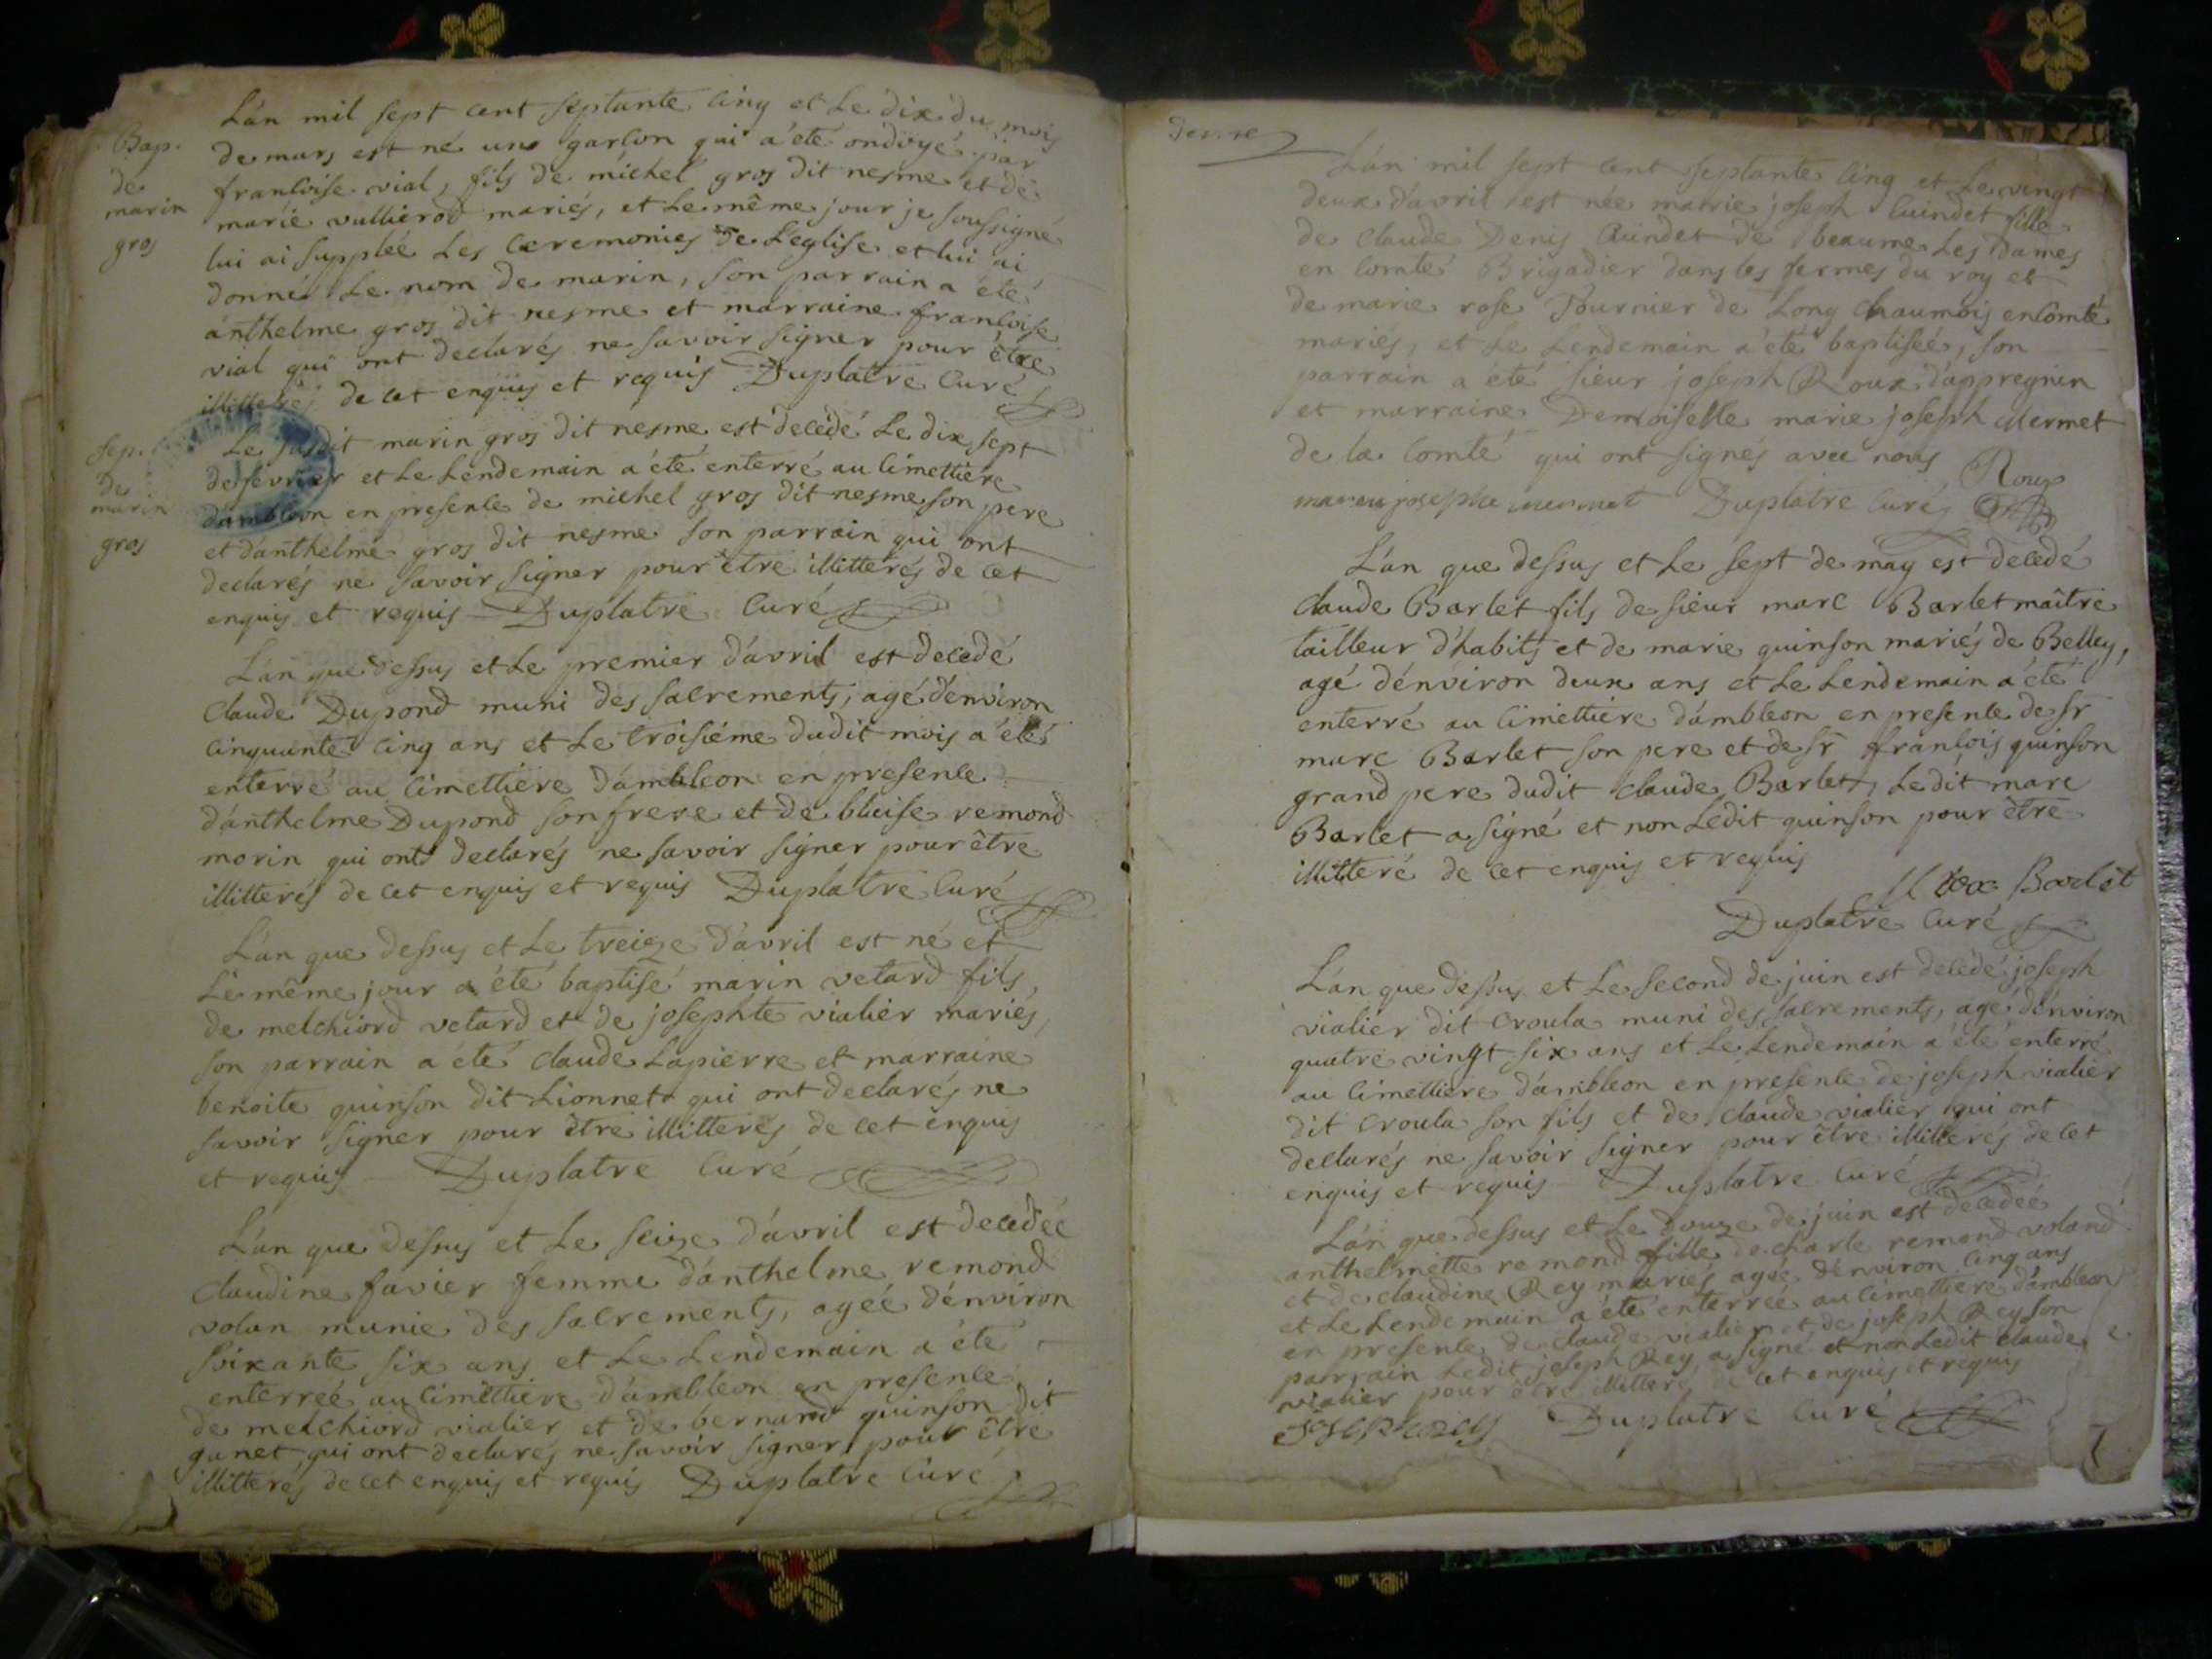 L'án mil sept cent septante cinq et Le dix du mois
Bap. de mars est né uns garcon qui a été ondoyé par
de francoise vial, fils de michel gros dit nesme et de
marin marie vullierod mariés, et Le même jour je soussigné
gros lui ai supplée Les ceremonies de L'eglise et lui ai
donnés Le nom de marin, son parrain a été
anthelme gros dit nesme et marraine francoise
vial qui ont declarés ne savoir signer pour être
illitterés de cet enquis et requis Duplatre Curé
Sep. Le susdit marin gros dit nesme est decedé Le dix sept
de de fevrier et Le Lendemain a été enterré au Cimettiere
marin d'ambleon en presence de michel gros dit nesme son pere
gros et d'anthelme gros dit nesme son parrain qui ont
declarés ne savoir signer pour être illitterés de cet
enquis et requis Duplatre Curé
L'án que dessus et Le premier d'avril est decedé
Claude Dupond muni des sacrements, agé d'environ
cinquante cinq ans et Le troisiéme dudit mois a été
enterré au Cimettiere d'ambleon en presence
d'anthelme Dupond son frere et de blaise remond
morin qui ont declarés ne savoir signer pour être
illitterés de cet enquis et requis Duplatre Curé
L'án que dessus et Le treize d'avril est né et
Le même jour a été baptisé marin vetard fils
de melchiord vetard et de josephte vialier mariés,
son parrain a été claude Lapierre et marraine
benoite quinson dit Lionnet qui ont declarés ne
savoir signer pour être illitterés de cet enquis
et requis Duplatre Curé
L'án que dessus et Le seize d'avril est decedée
Claudine favier femme d'anthelme remond
volan munie des sacrements, agée d'environ
soixante six ans et Le Lendemain a été
enterreé au Cimettiere d'ambleon en presence
de melchiord vialier et de bernard quinson dit
ganet, qui ont declarés ne savoir signer pour être
illitterés de cet enquis et requis Duplatre Curé
L'án mil sept cent septante cinq et Le vingt
deux d'avril est née marie joseph Cuindet fille
de Claude Denis Cuindet de beaume Les Dames
en Comté Brigadier dans les fermes du roy et
de marie rose Fournier de Long Chaumois en Comté
mariés, et Le Lendemain a été baptiseé, son
parrain a été sieur joseph Roux d'appregnin
et marraine Demoiselle marie joseph Mermet
de la Comté qui ont signés avec nous Roux
mermet Duplatre Curé
L'án que dessus et Le sept de may est decedé
Claude Barlet fils de sieur marc Barlet maître
tailleur d'habits et de marie quinson mariés de Belley,
agé d'environ deux ans et Le Lendemain a été
enterré au Cimettiere d'ambleon en presence de sr
marc Barlet son pere et de sr francois quinson
grand pere dudit Claude Barlet, Ledit marc
Barlet a signé et non Ledit quinson pour être
illitteré de cet enquis et requis
Barlet
Duplatre Curé
L'án que dessus et Le second de juin est decedé joseph
vialier dit Croula muni des sacrements, agé d'environ
quatre vingt six ans et Le Lendemain a été enterré
au Cimettiere d'ambleon en presence de joseph vialier
dit Croula son fils et de claude vialier qui ont
declarés ne savoir signer pour être illitterés de cet
enquis et requis Duplatre Curé
L'án que dessus et Le douze de juin est decedeé
anthelmette remond fille de charle remond voland
et de claudine Rey mariés agée d'environ cinq ans
et Le Lendemain a été enterreé au Cimettiere d'ambleon
en presence de claude vialier et de joseph Rey son
parrain Ledit joseph Rey a signé et non Ledit claude
vialier pour être illitteré de cet enquis et requis
Duplatre Curé